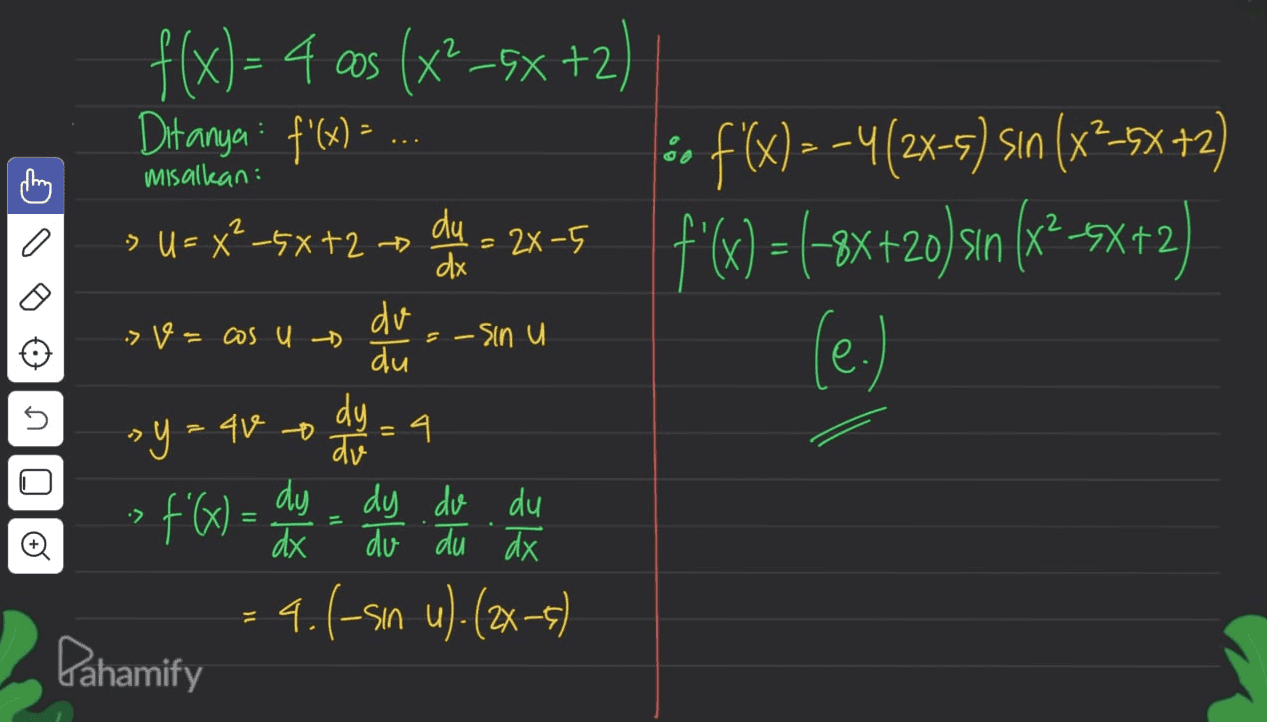 f(x) = 4 cos (x² - 5x + 2)
Ditanya : f'(x) = ...
misalkan :
> u = x² - 5x + 2 → du/dx = 2x - 5
> v = cos u → dv/du = - sin u
> y = 4v → dy/dv = 4
> f'(x) = dy/dx = dy/dv . dv/du . du/dx
= 4. (-sin u). (2x - 5)
∴ f'(x) = -4 (2x-5) sin (x² - 5x + 2)
f'(x) = (-8x + 20) sin (x² - 5x + 2)
(e.)
Pahamify